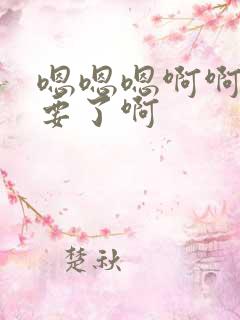 嗯嗯嗯啊啊
要了啊
楚秋